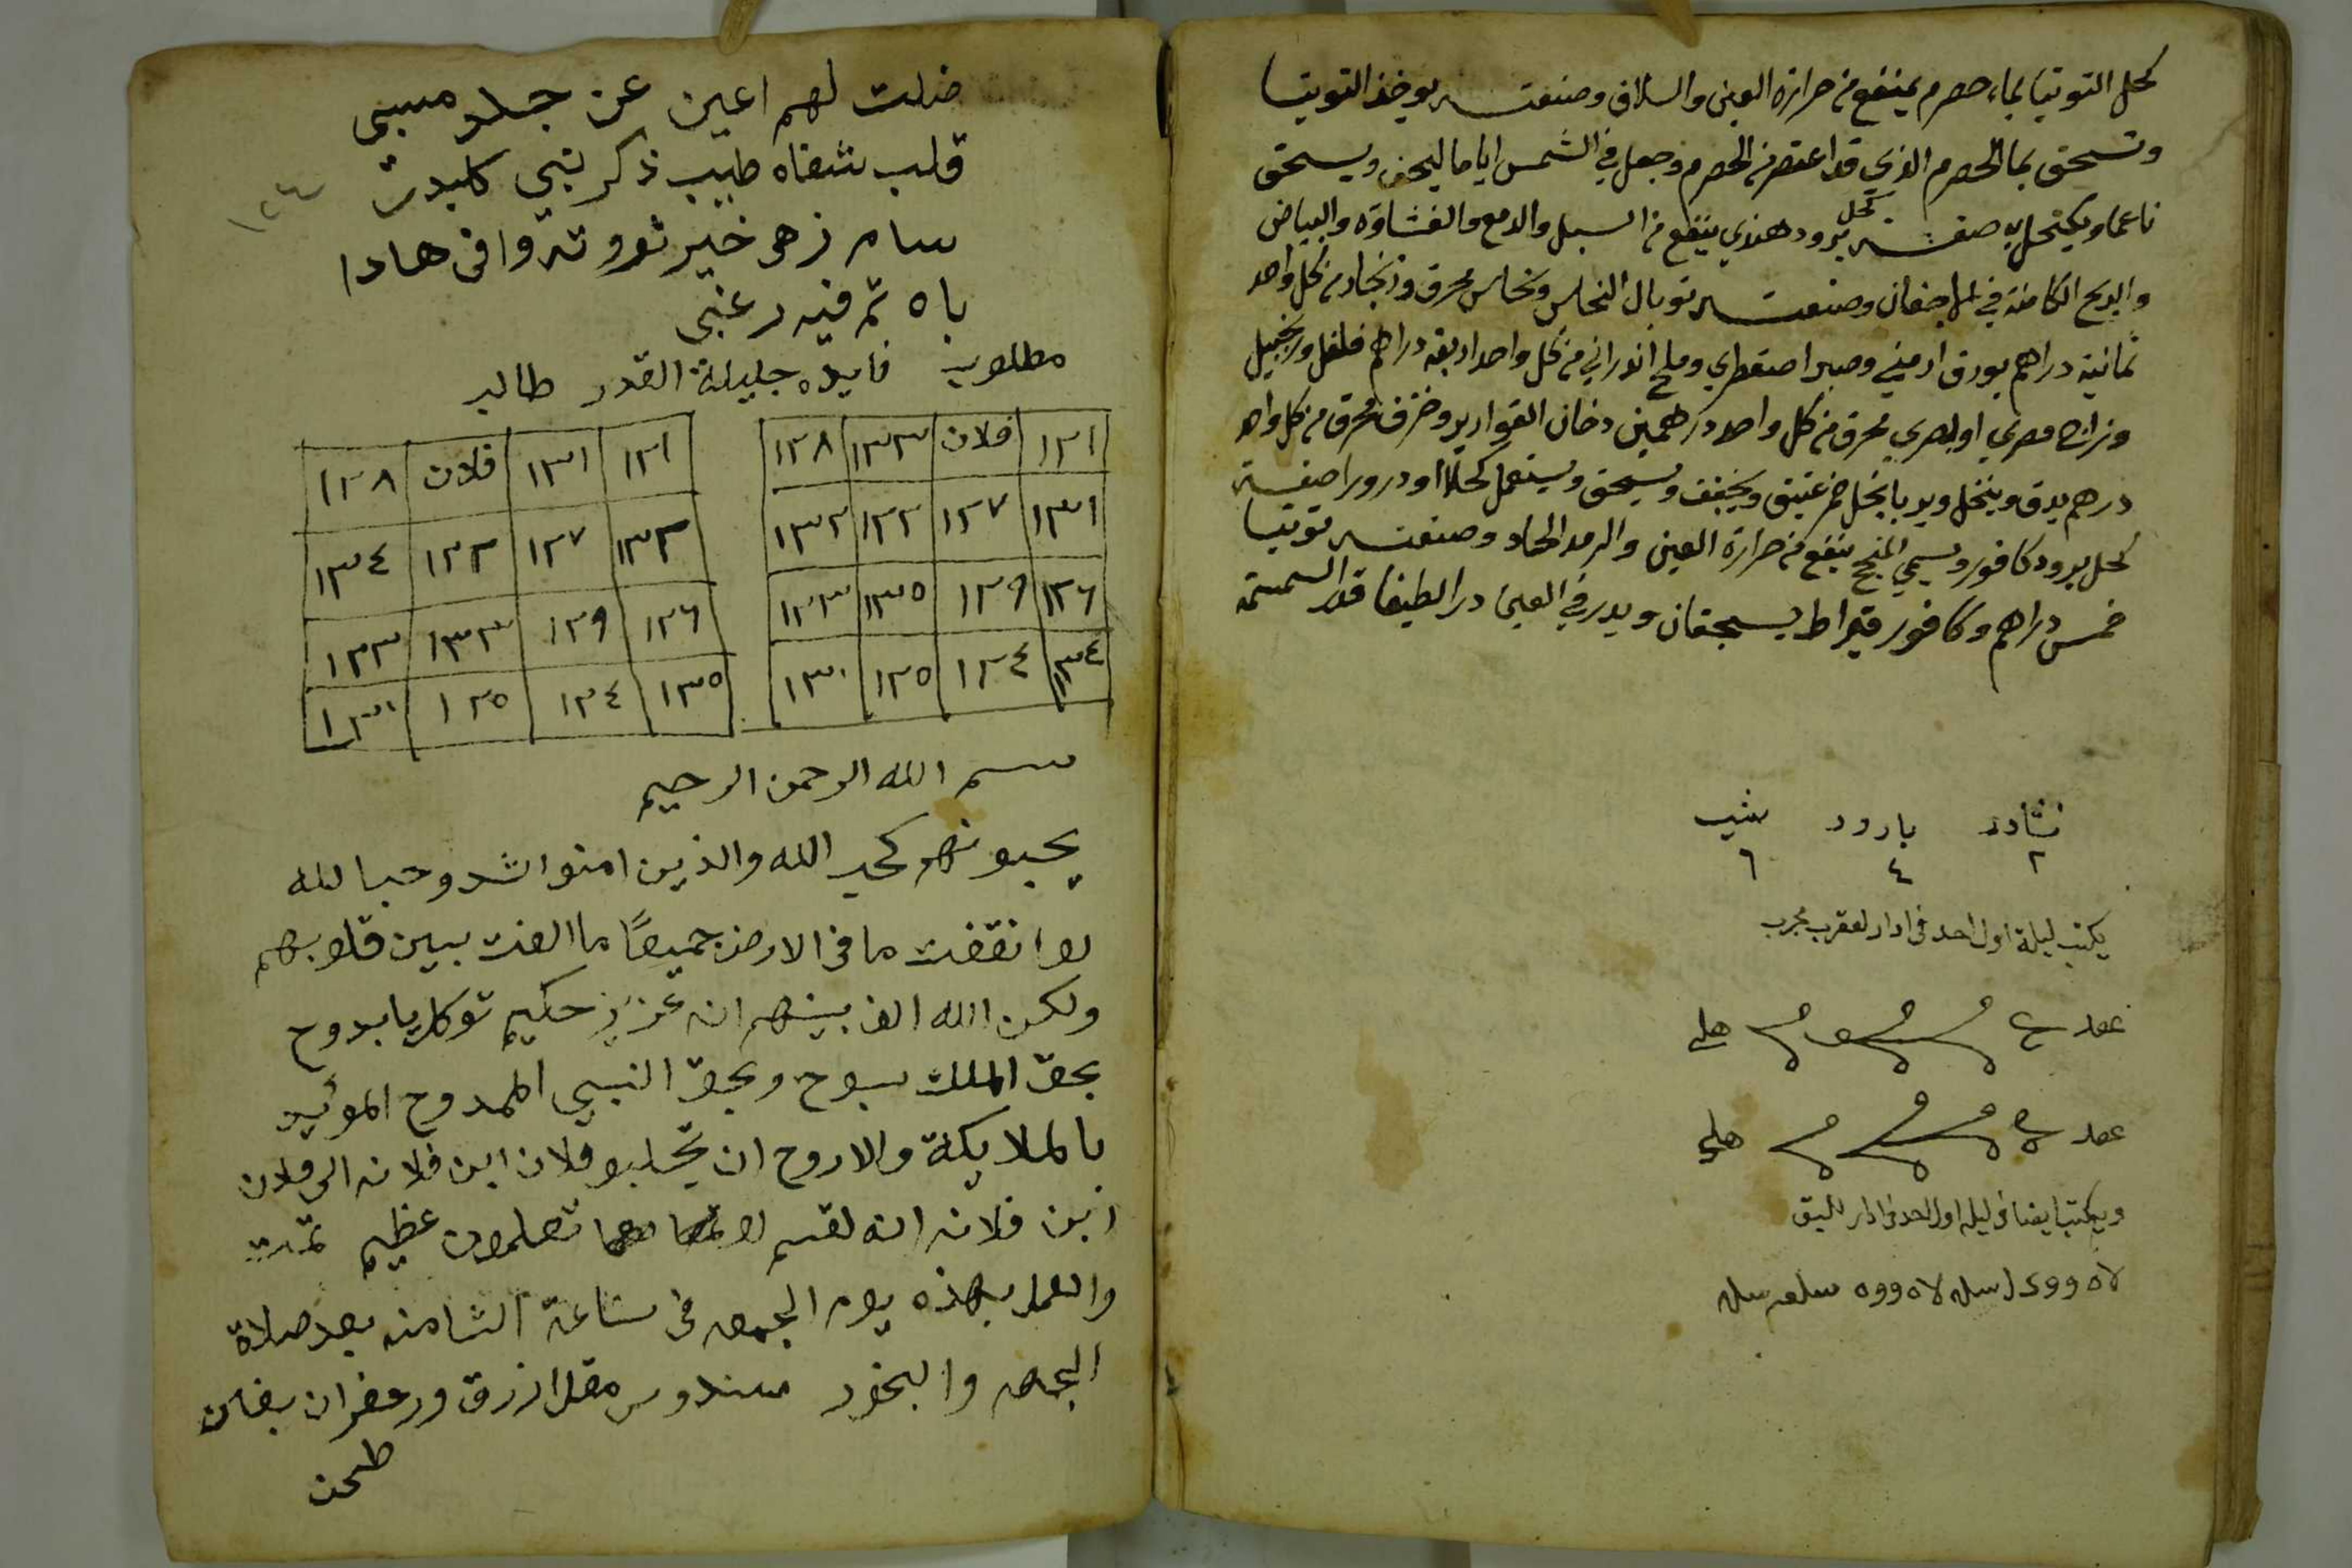 كحل التوتيا بماء حصرم ينفع من حرارة العين والسلاق وصنعته يوخذ التوتيا
وتسحق بما الحصرم الذي قد اعتصر من الحصرم وجعل في الشمس اياما ليجف ويسحق
ناعما ويكتحل به صفة كحل برود هندي ينفع من السبل والدمع والغشاوه والبياض
والريح الكامنة في الاجفان وصنعته توبال النحاس ونحاس محرق وزنجار من كل واحد
ثمانية دراهم بورق ارمني وصبر اصقطري وملح اندراني من كل واحد اربعه دراهم فلفل وزنجبيل
مصري او بصري محرق من كل واحد درهمين دخان القوارير وخزف محرق من كل واحد
درهم يدق وينخل ويربا بخل خمر عتيق ويجفف ويسحق ويستعمل كحلا او درورا صفة
كحل برود كافور ويسمي المنجح ينفع من حرارة العين والرمد الحاد وصنعته توتيا
خمس دراهم وكافور قيراط يسحقان ويدر في العين درا لطيفا قدر السمسمة
نشادر بارود شب
٢ ٤ ٦
يكتب ليلة اول احد في ادار لعقرب مجرب
عقد
عقد
ويكتب ايضا في ليله اول احد في ادار للبق
ضلت لهم اعين عن جلد مسبى
قلب شفاه طبيب ذكر نبي كلبدر
سام زهى خير نورو تروا فى هادا
باه ثم فيه رغبى
١٢٤
مطلوب فايده جليلة القدر طالب
١٢١ فلان ١٣٣ ١٢٨
١٣١ ١٢٧ ١٢٢ ١٣٢
١٢٦ ١٢٩ ١٣٥ ١٢٣
١٣٤ ١٢٤ ١٢٥ ١٣٠
١٢١ ١٣١ فلان ١٢٨
١٣٣ ١٢٧ ١٢٢ ١٣٤
١٢٦ ١٢٩ ١٣٣ ١٢٣
١٣٥ ١٢٤ ١٢٥ ١٣٠
بسم الله الرحمن الرحيم
يحبونهم كحب الله والذين امنوا اشد وحبا لله
لوا نقفت ما فى الارض جميعًا ما الفت بين قلوبهم
ولكن الله الف بينهم انه عزيز حكيم توكل يا بدوح
بحق الملك سبوح وبحق النبي الممدوح المؤيد
بالملايكة والاروح ان تجلبو فلان ابن فلانه الى فلان
ابن فلانه انه لقسم لو تعلمون عظيم تمت
والعمل بهذه يوم الجمعه فى ساعة الثامنه بعد صلاة
الجمعه والبخور سندوس مقل ازرق وزعفران بغلن
طحن